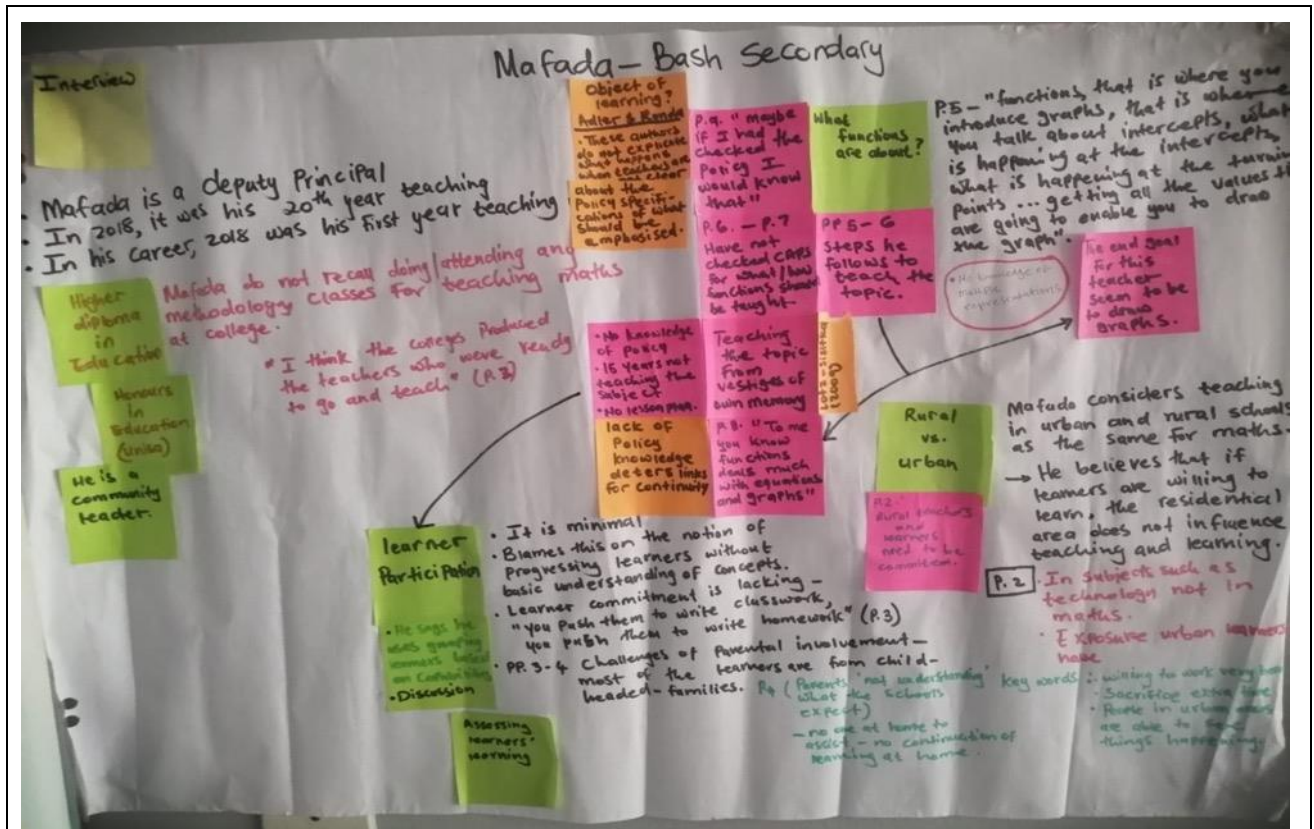 Mafada – Bash Secondary
Interview
• Mafada is a deputy Principal
• In 2018, it was his 20th year teaching
• In his career, 2018 was his first year teaching
Higher
diploma
in
Education
Mafada do not recall doing/attending any
methodology classes for teaching maths
at college.
"I think the colleges produced
the teachers who were ready
to go and teach" (P.3)
Honours
in
Education
(Unisa)
He is a
community
leader.
Object of
learning?
Adler & Ronda
• These authors
do not explicate
what happens
when teachers are
not clear
about the
Policy specifi-
cations of what
should be
emphasised.
P.9. "maybe
if I had
checked the
Policy I
would know
that"
P.6. – P.7
Have not
checked CAPS
for what/how
functions should
be taught
What
functions
are about?
PP 5 – 6
Steps he
follows to
teach the
topic.
P.5 – "functions, that is where you
introduce graphs, that is where
you talk about intercepts, what
is happening at the intercepts,
what is happening at the turning
points ... getting all the values th
are going to enable you to draw
the graph".
• No knowledge of
multiple
representations
The end goal
for this
teacher
seem to be
to draw
graphs.
• No knowledge
of policy
• 15 years not
teaching the
subject
• No lesson plan.
Teaching
the topic
from
vestiges of
own memory
(2009)
lack of
Policy
knowledge
deters links
for continuity
P.8. "To me
you know
functions
deals much
with equations
and graphs"
Rural
vs.
urban
P.2.
Rural teachers
and
learners
need to be
commitment.
Mafada considers teaching
in urban and rural schools
as the same for maths.
→ He believes that if
learners are willing to
learn, the residential
area does not influence
teaching and learning.
P. 2
• In subjects such as
technology not in
maths.
• Exposure urban learners
have
learner
Participation
• He says he
uses grouping
learners based
on capabilities
• Discussion
• It is minimal
• Blames this on the notion of
progressing learners without
basic understanding of concepts.
• Learner commitment is lacking –
"you push them to write classwork,
you push them to write homework" (P.3)
• PP. 3-4 Challenges of Parental involvement –
most of the learners are from child-
headed-families.
P.4 (Parents 'not understanding'
what the schools
expect)
– no one at home to
assist – no continuation of
learning at home ...
key words:
• willing to work very
• Sacrifice extra time
• People in urban areas
are able to see
things happening.
Assessing
learners'
learning